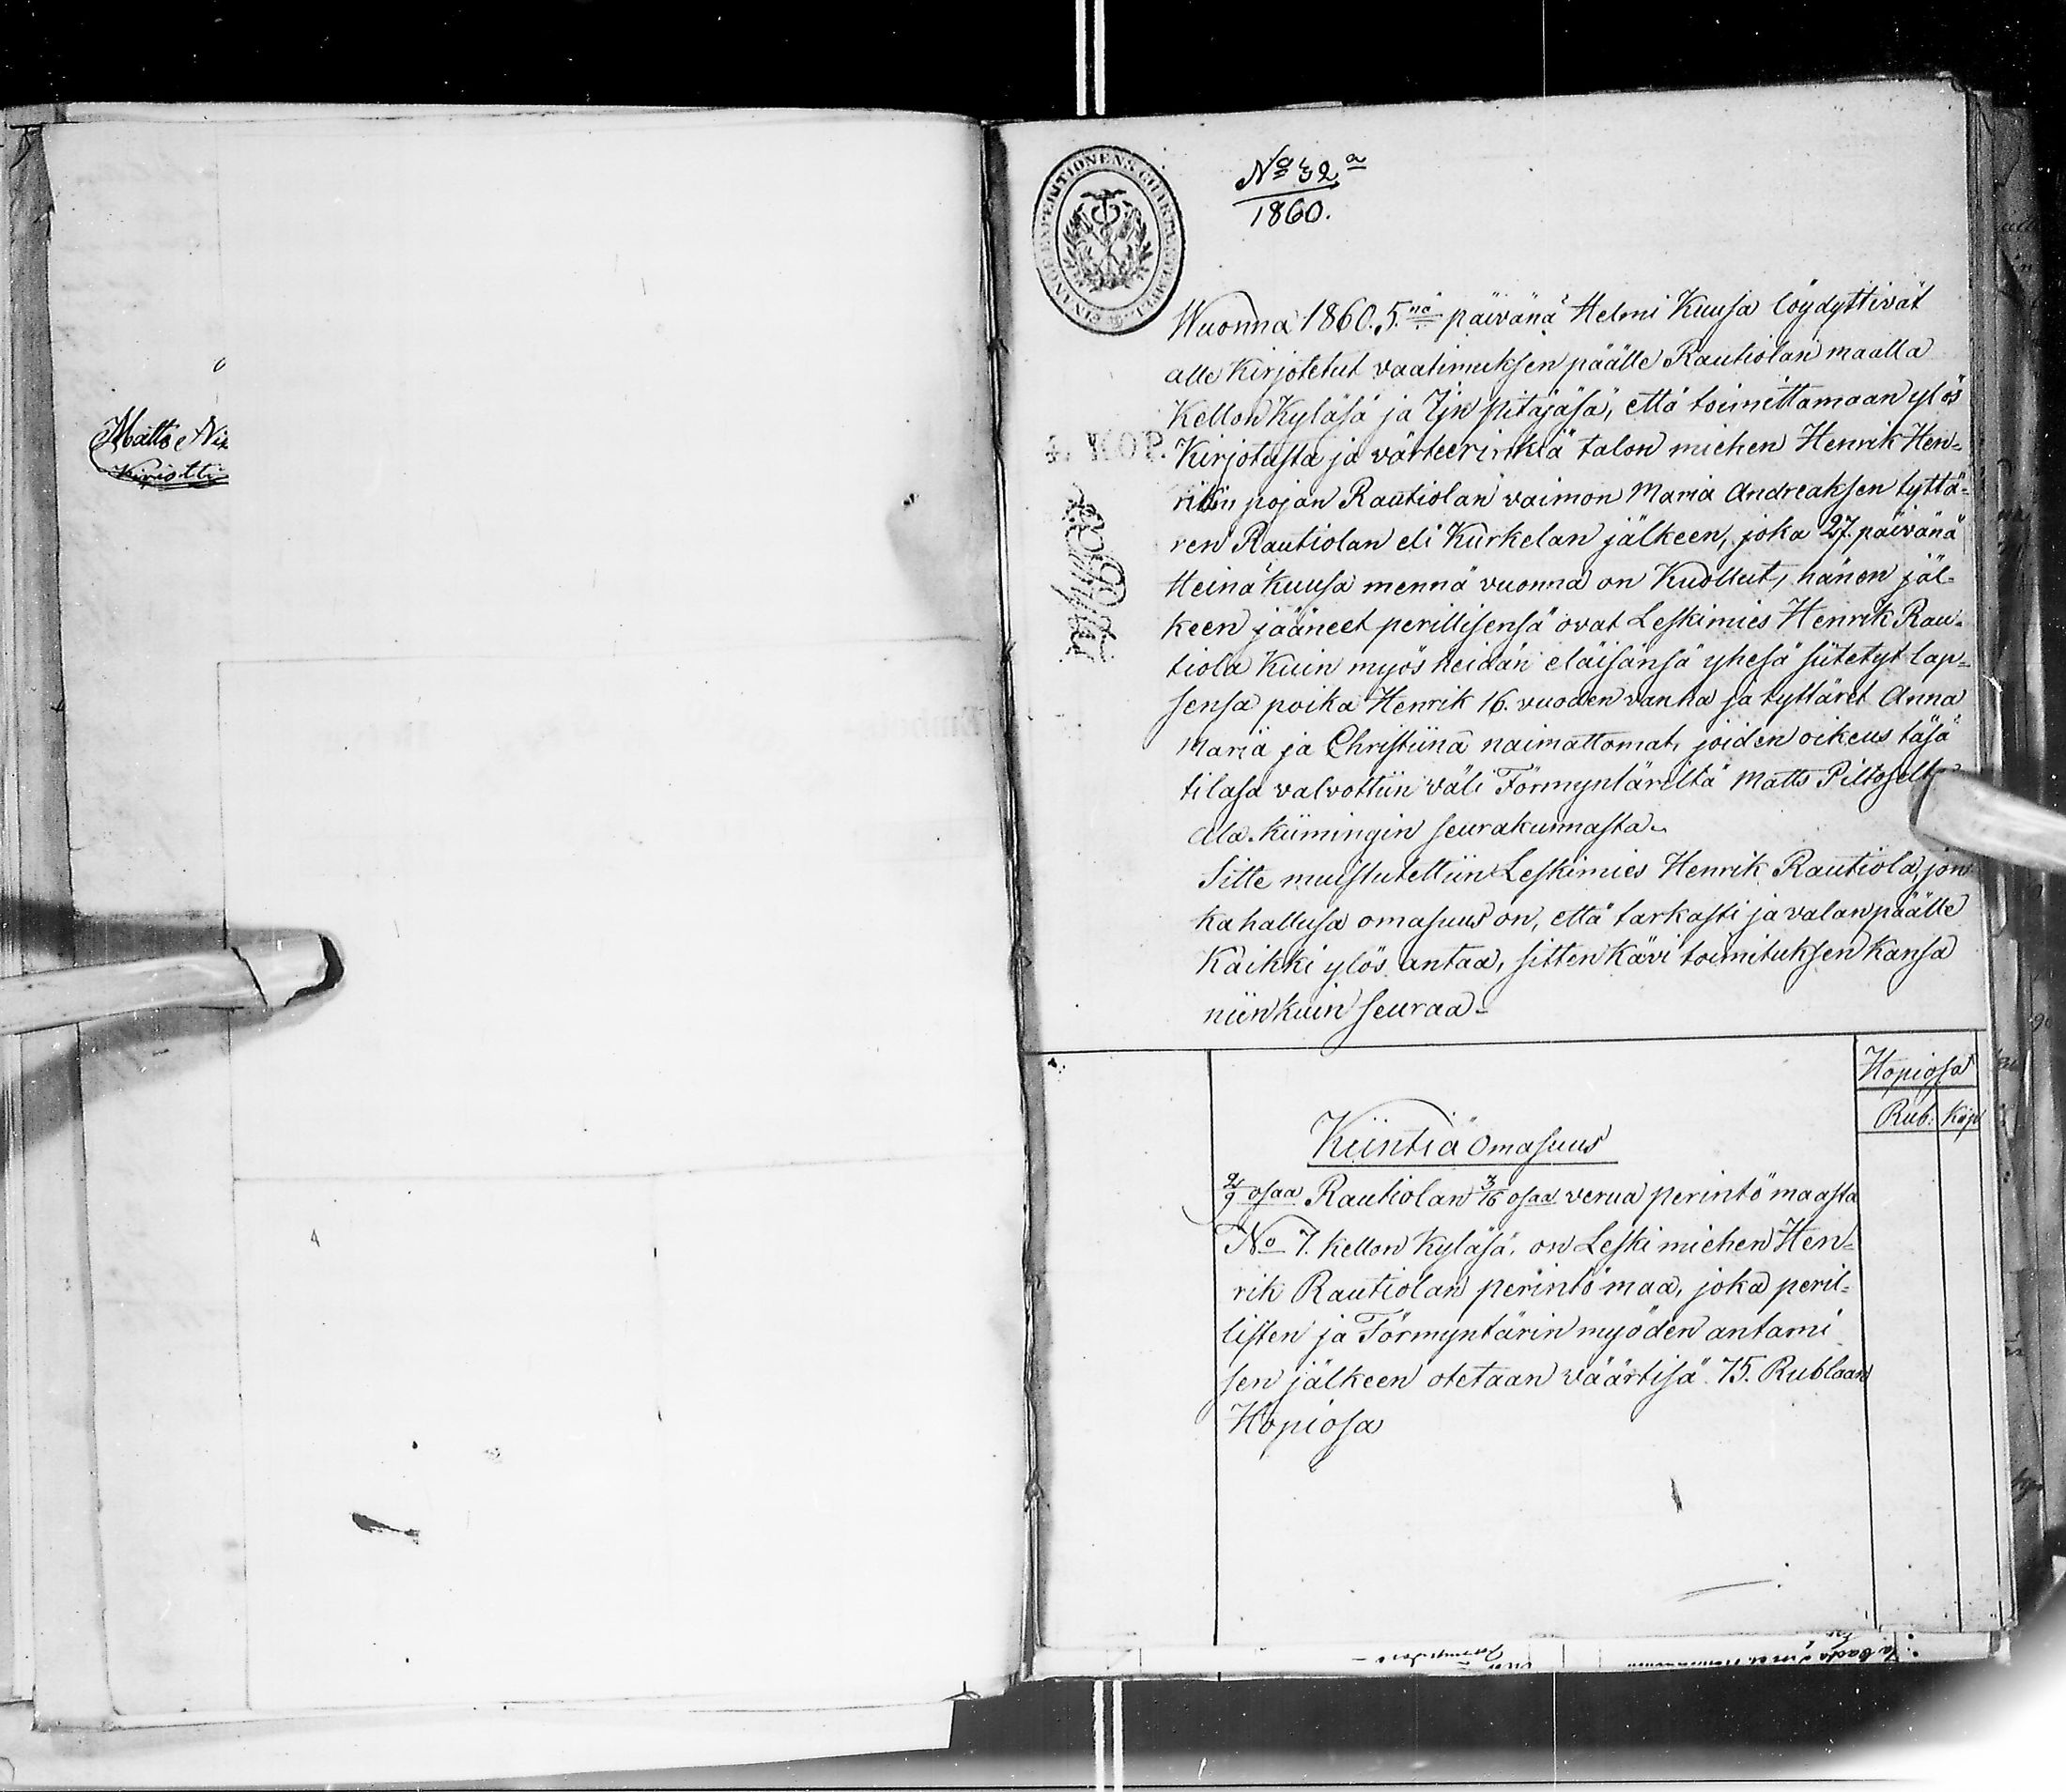 Matts Ni
No 32 a
1860.
4. KOP.
Wuonna 1860. 5.nä päivänä Helmi Kuusa löydyttivät
alle kirjotetut vaatimuksen päälle Rautiolan maalla
Kellon Kyläsä ja Ijn pitäjäsä, että toimittamaan ylös
Kirjotusta ja värteerinkiä talon miehen Henrik Hen-
rikin pojan Rautiolan vaimon Maria Andreaksen tyttä-
ren Rautiolan eli Kurkelan jälkeen, joka 27. päivänä
Heinä kuusa mennä vuonna on Kuollut, hänen jäl-
keen jääneet perillisensä ovat Leskimies Henrik Rau-
tiola Kuin myös heidän eläisänsä yhesä siitetyt lap-
sensa poika Henrik 16. vuoden vanha ja tyttäret Anna
Maria ja Christiina naimattomat, joiden oikeus täsä
tilasa valvottiin väli Förmyntäriltä Matts
Ala-Kiimingin seurakunnasta.
Sitte muistutettiin Leskimies Henrik Rautiola, jon
ka hallusa omasuus on, että tarkasti ja valan päälle
Kaikki ylös antaa, sitten Kävi toimituksen Kansa
niinkuin seuraa-
Hopiosa
Rub: Kop
Kiintiä Omasuus
2/9 osaa Rautiolan 3/16 osaa verua perintö maasta
No 7. Kellon Kyläsä, on Leski miehen Hen-
rik Rautiolan perintö maa, joka peril-
listen ja Förmyntärin myöden antami
sen jälkeen otetaan väärtisä 75. Rublaan
Hopiosa